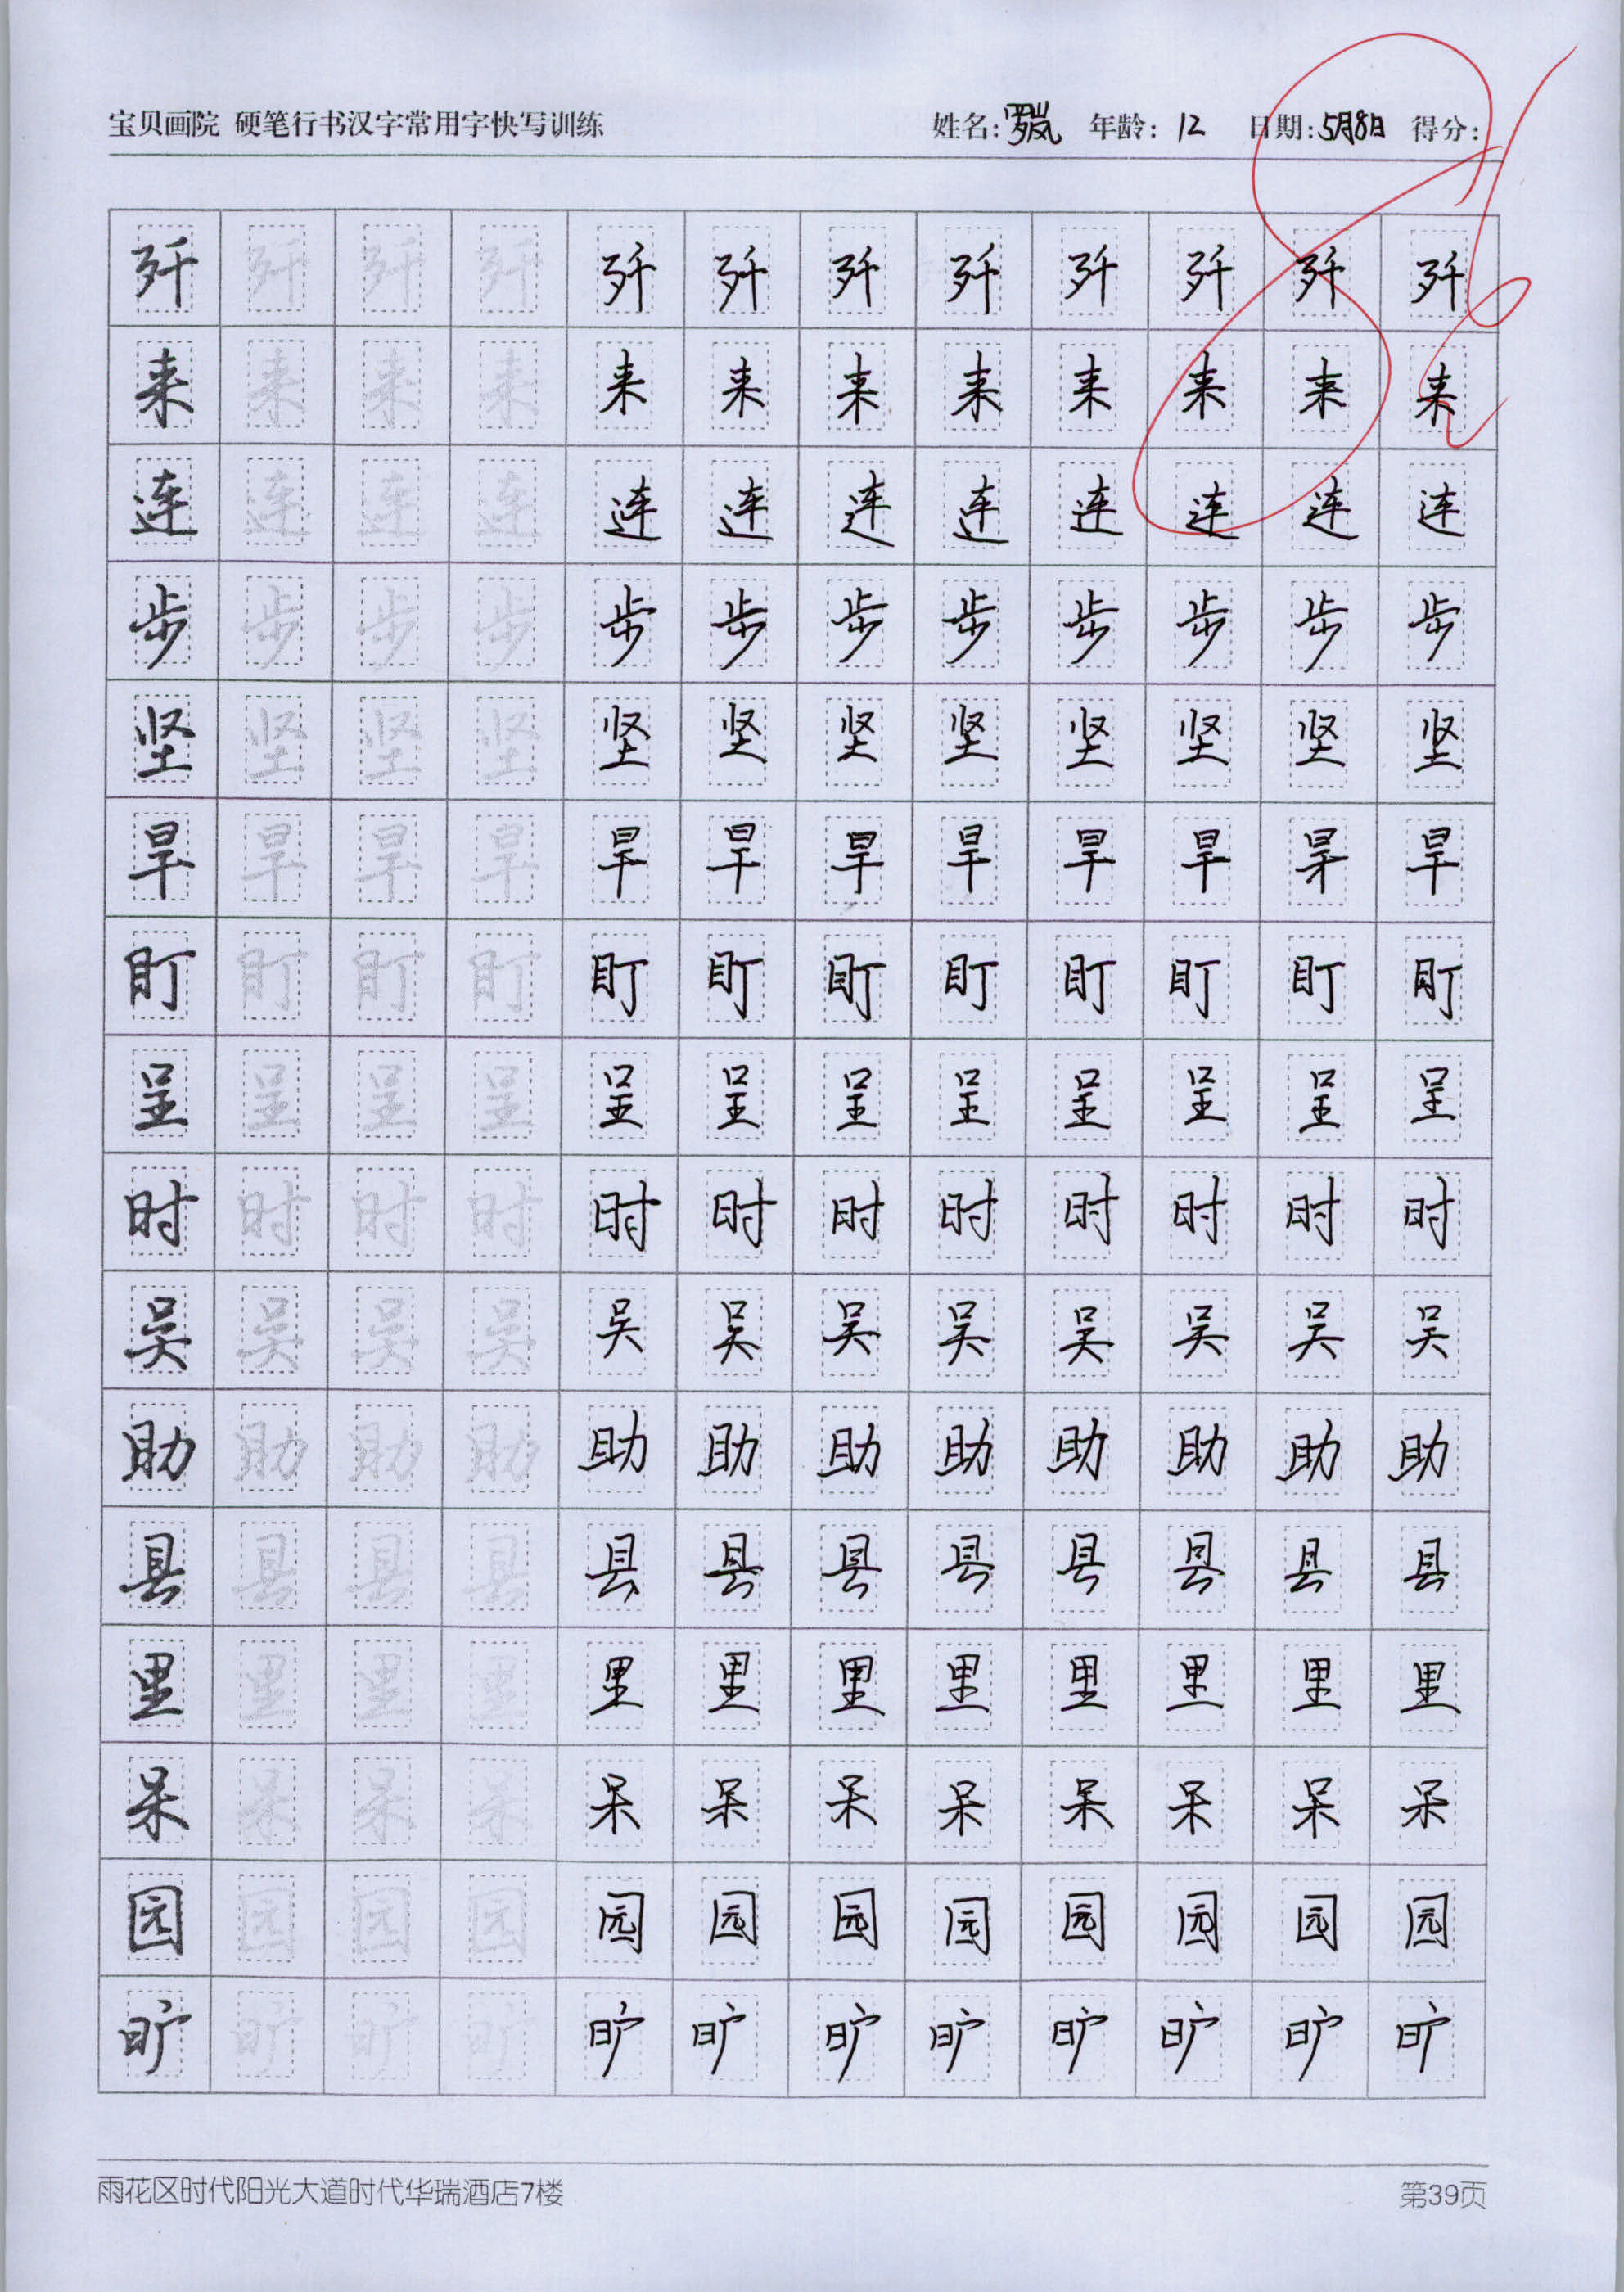 宝贝画院 硬笔行书汉字常用字快写训练 姓名:罗岚 年龄: 12 日期:5月8日 得分:
歼 歼 歼 歼 歼 歼 歼 歼 歼 歼 歼 歼
来 来 来 来 来 来 来 来 来 来 来 来
连 连 连 连 连 连 连 连 连 连 连 连
步 步 步 步 步 步 步 步 步 步 步 步
坚 坚 坚 坚 坚 坚 坚 坚 坚 坚 坚 坚
旱 旱 旱 旱 旱 旱 旱 旱 旱 旱 旱 旱
盯 盯 盯 盯 盯 盯 盯 盯 盯 盯 盯 盯
呈 呈 呈 呈 呈 呈 呈 呈 呈 呈 呈 呈
时 时 时 时 时 时 时 时 时 时 时 时
吴 吴 吴 吴 吴 吴 吴 吴 吴 吴 吴 吴
助 助 助 助 助 助 助 助 助 助 助 助
县 县 县 县 县 县 县 县 县 县 县 县
里 里 里 里 里 里 里 里 里 里 里 里
呆 呆 呆 呆 呆 呆 呆 呆 呆 呆 呆 呆
园 园 园 园 园 园 园 园 园 园 园 园
旷 旷 旷 旷 旷 旷 旷 旷 旷 旷 旷 旷
雨花区时代阳光大道时代华瑞酒店7楼 第39页